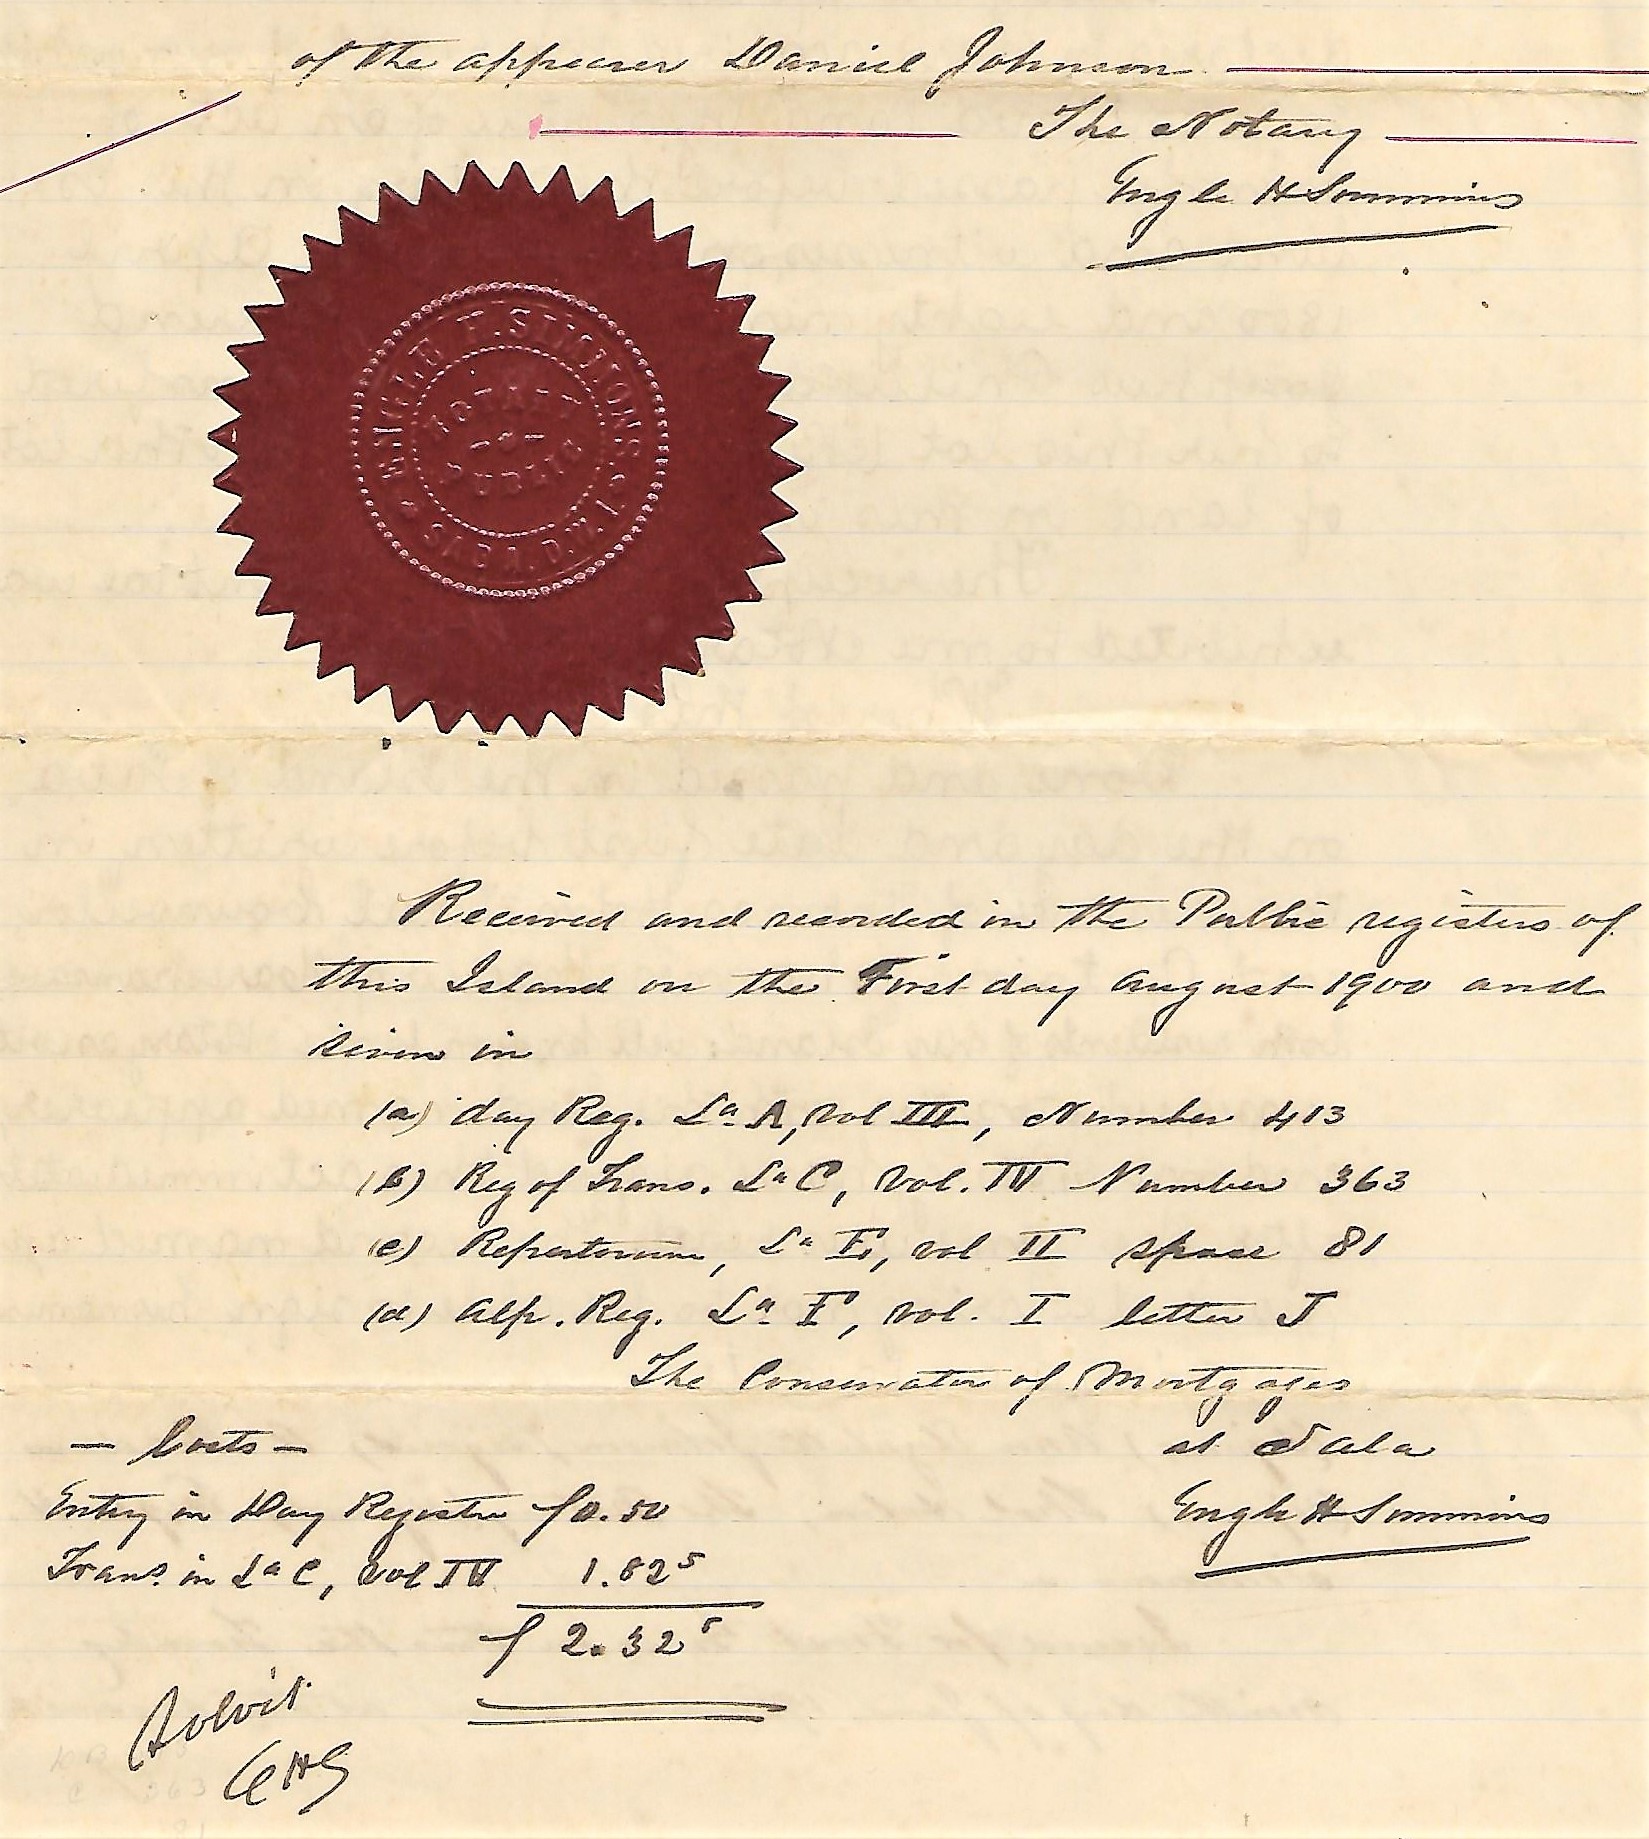 of the appearer Daniel Johnson
The Notary
Engle H Simmons
ENGLE H. SIMMONS
NOTARY
PUBLIC
SABA, D.W.I.
Received and recorded in the Public registers of
this Island on the First day August 1900 and
in
(a) day Reg. La. A, Vol III, Number 413
(b) Reg of Trans. La C, Vol. IV Number 363
(c) Repertorium, La E, vol II space 81
(d) Alp. Reg. La. F, vol. I letter J
The Conservator of Mortgages
at Saba
Engle H Simmons
— Costs —
Entry in Day Register f0.50
Trans. in La C, Vol IV 1.82⁵
f 2.32⁵
Solvit
EHS